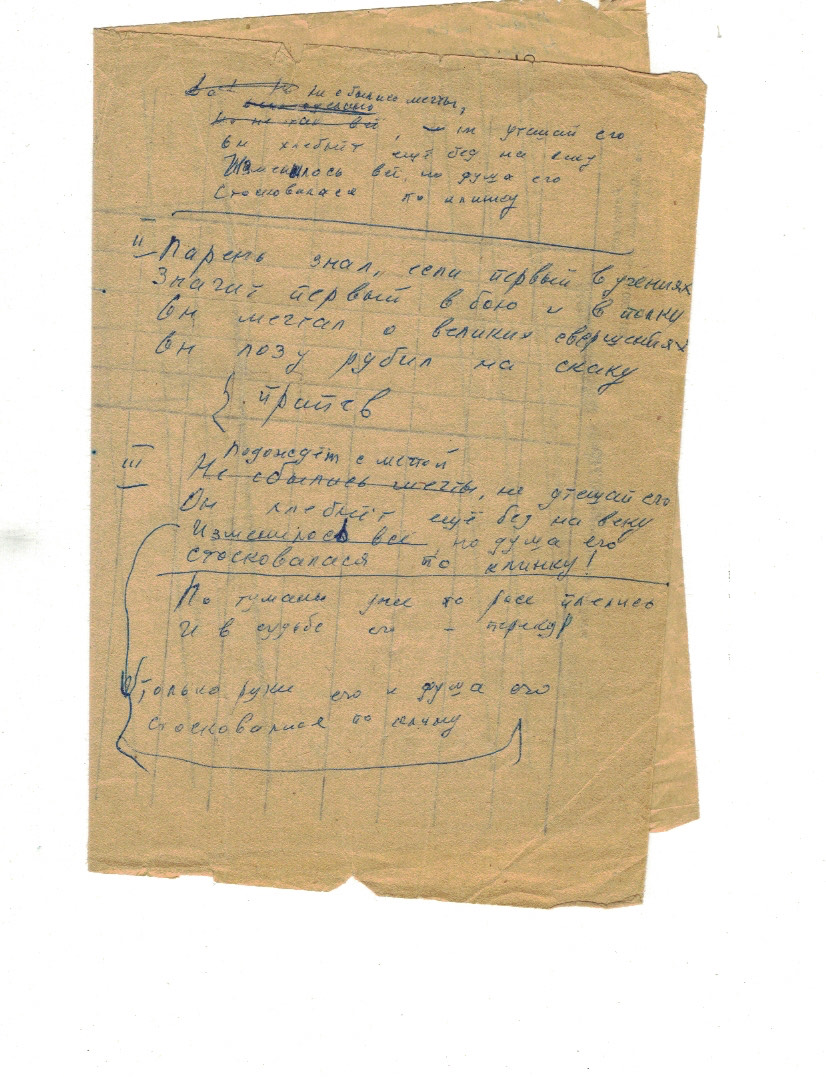 Не сбылись мечты,
но не так всё, утешай его
Он хлебнёт ещё бед на веку
Изменилось всё, но душа его
Стосковалася по клинку
II Парень знал, если первый в учениях
Значит первый в бою и в полку
Он мечтал о великих свершениях
Он лозу рубил на скаку
припев
Подождёт с мечтой
III Не сбылись мечты, не утешай его
Он хлебнёт ещё бед на веку
Изменилось всё, но душа его
стосковалася по клинку!
По туману уже по росе плелись
И в судьбе его - перекур
Только руки его и душа его
стосковалися по клинку